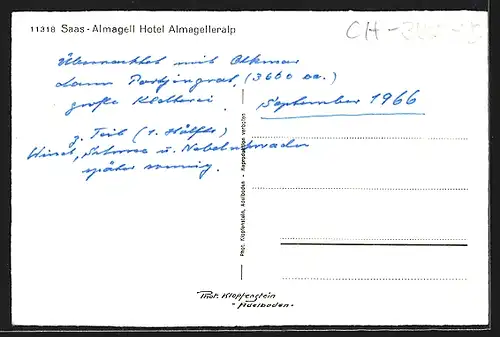 11318 Saas-Almagell Hotel Almagelleralp
CH-
Übernachtet mit Otkmar
dann Portjengrat (3660 m.)
große Kletterei.
September 1966
z. Teil (1. Hälfte)
Wind, Schnee u. Nebelschwaden
später sonnig.
Phot. Klopfenstein, Adelboden - Reproduktion verboten
Phot. Klopfenstein
- Adelboden -